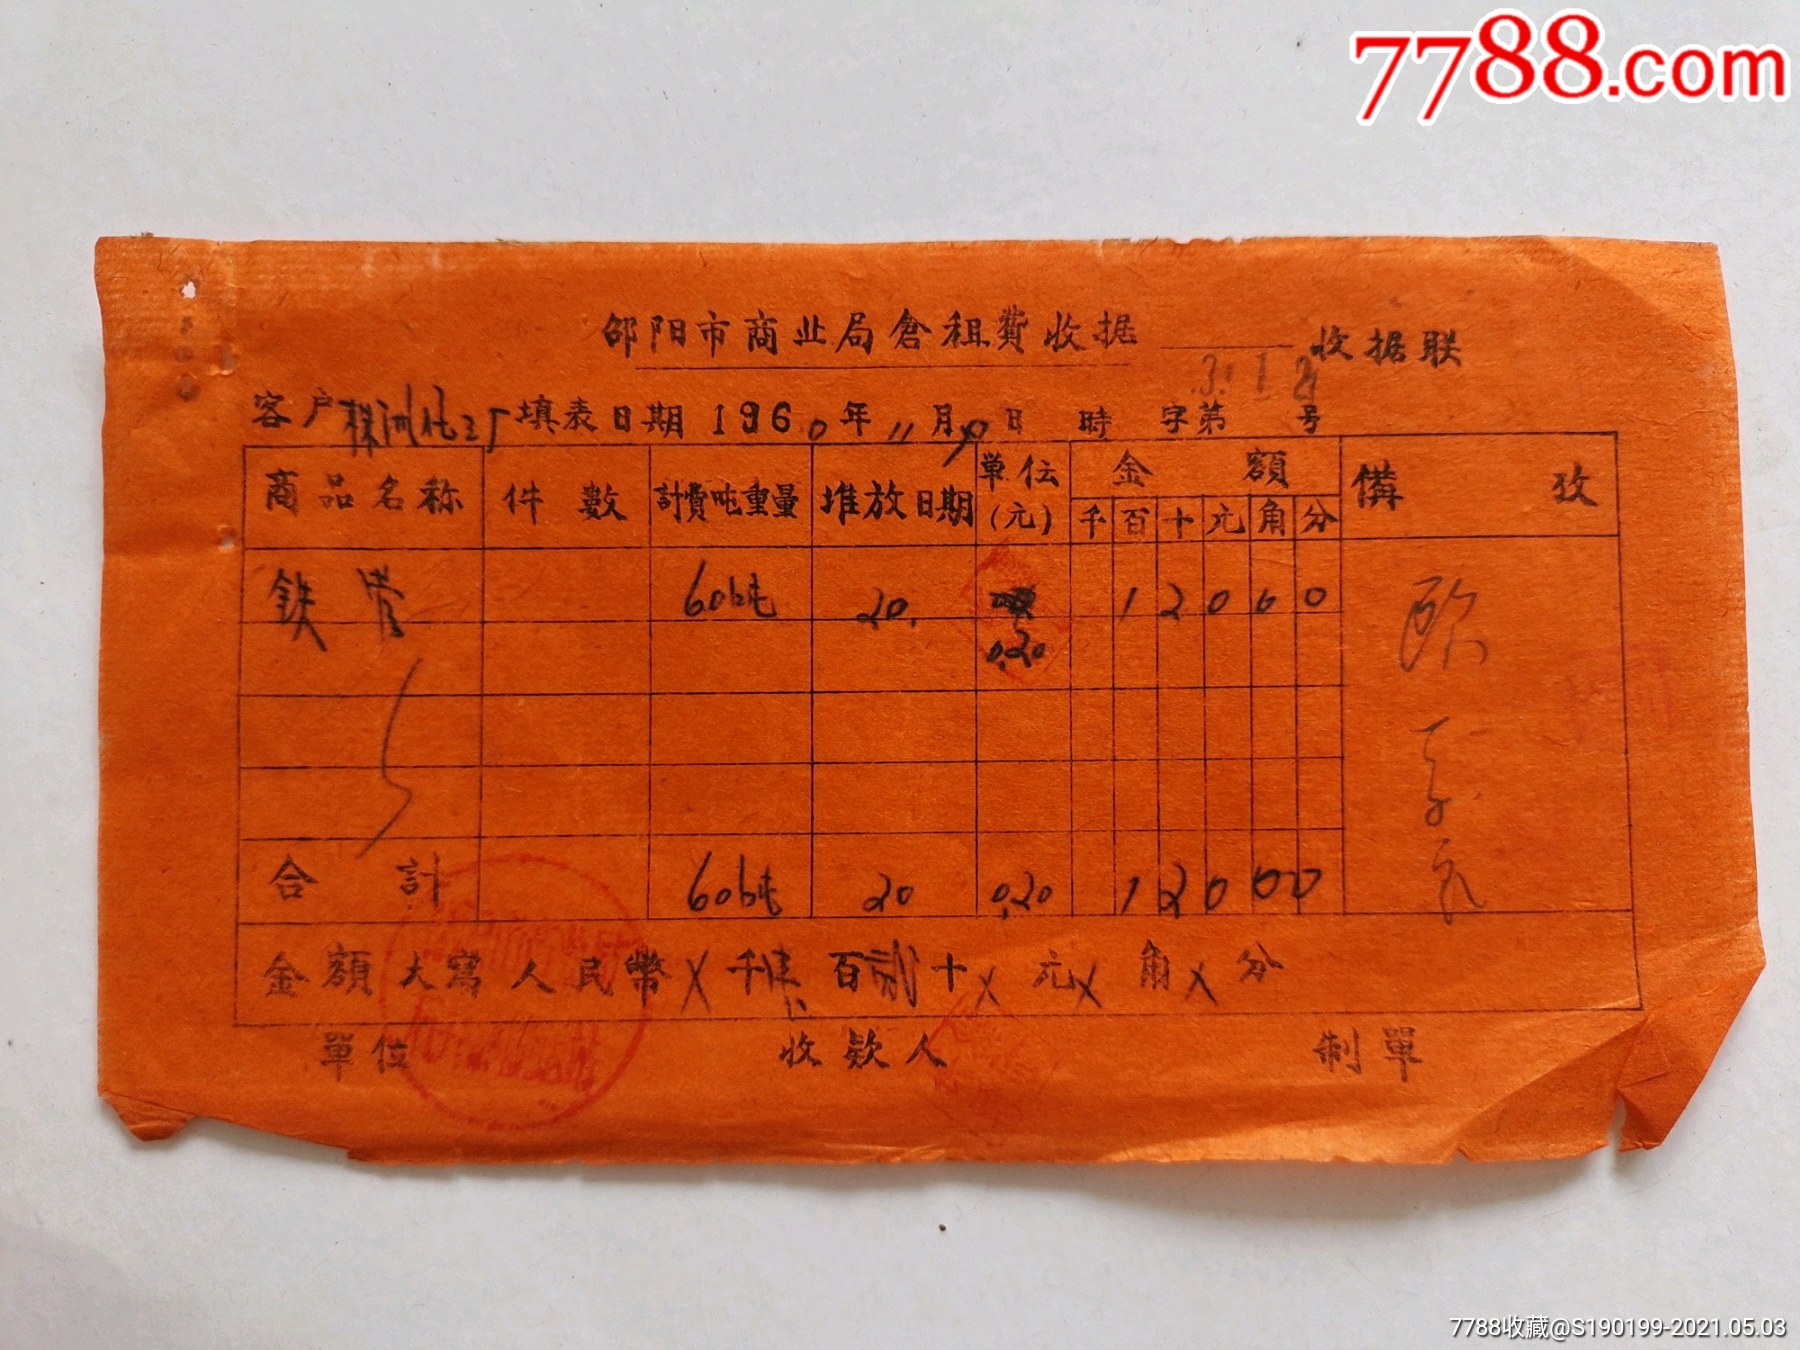 7788.com
邵阳市商业局倉租費收据 收据联
3118
客户株洲化工厂填表日期1960年11月 日 時 字第 号
商品名称 件数 計費吨重量 堆放日期 単位(元) 金額 千百十元角分 備攷
鉄管 60吨 20. 0.20 12000
合計 60吨 20 0.20 12000
金額大寫人民幣X千壹百贰十X元X角X分
單位 收欵人 制單
7788收藏@S190199-2021.05.03